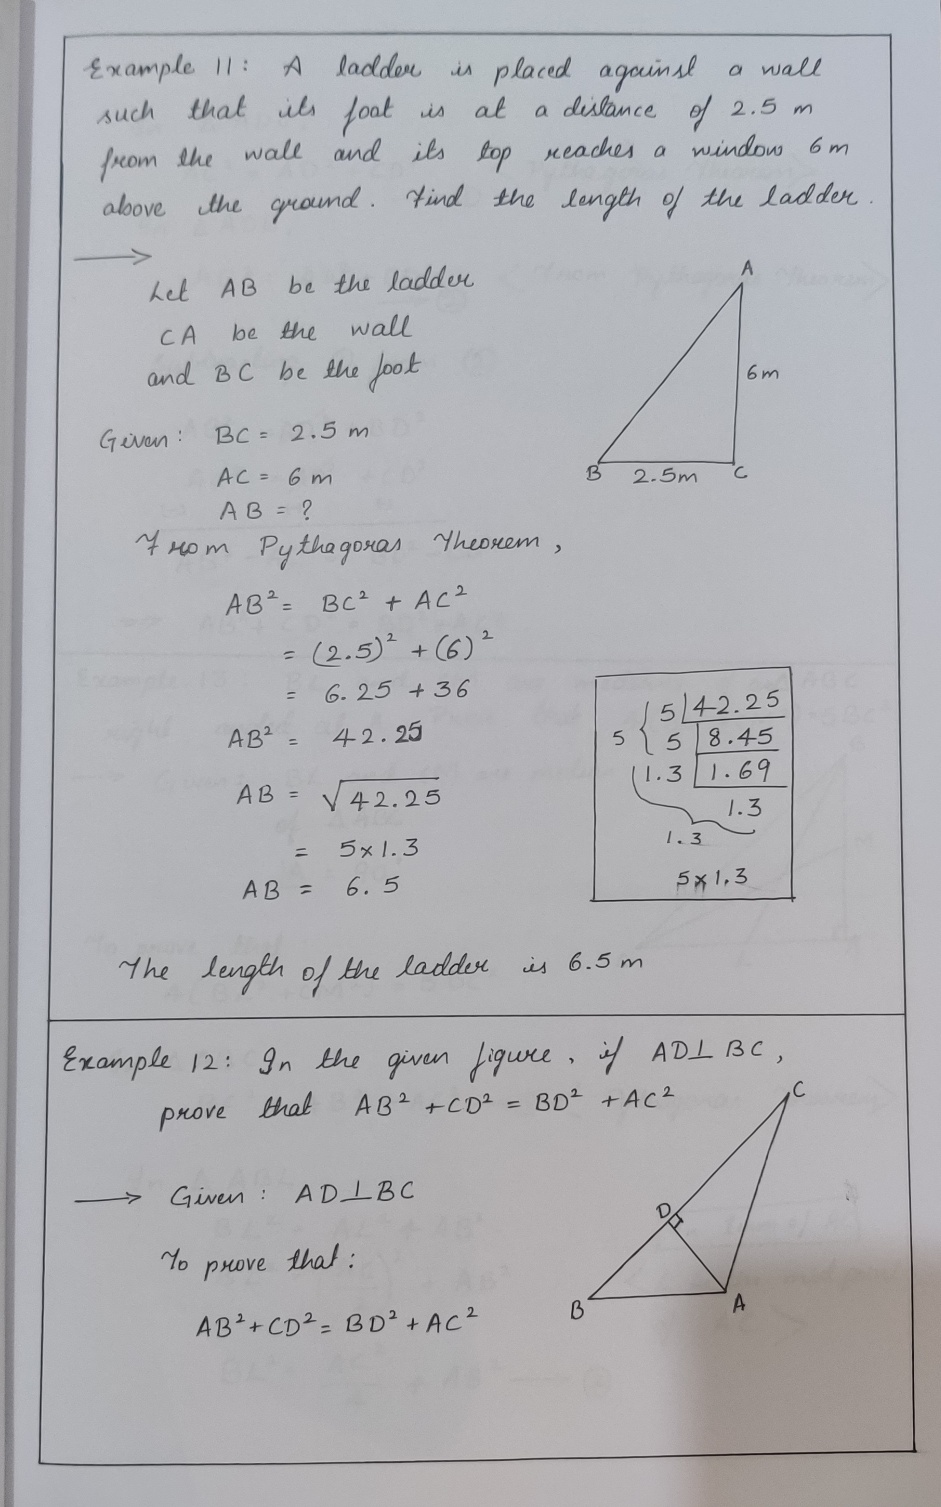 Example 11: A ladder is placed against a wall
such that its foot is at a distance of 2.5 m
from the wall and its top reaches a window 6 m
above the ground. Find the length of the ladder.
Let AB be the ladder
CA be the wall
and BC be the foot
A
6 m
B 2.5m C
Given: BC = 2.5 m
AC = 6 m
AB = ?
From Pythagoras Theorem,
AB² = BC² + AC²
= (2.5)² + (6)²
= 6.25 + 36
AB² = 42.25
AB = √42.25
= 5x1.3
AB = 6.5
5 42.25
5 5 8.45
1.3 1.69
1.3
1.3
5x1.3
The length of the ladder is 6.5 m
Example 12: In the given figure, if AD⊥BC,
prove that AB² + CD² = BD² + AC²
Given: AD⊥BC
To prove that:
AB² + CD² = BD² + AC²
C
D
B A